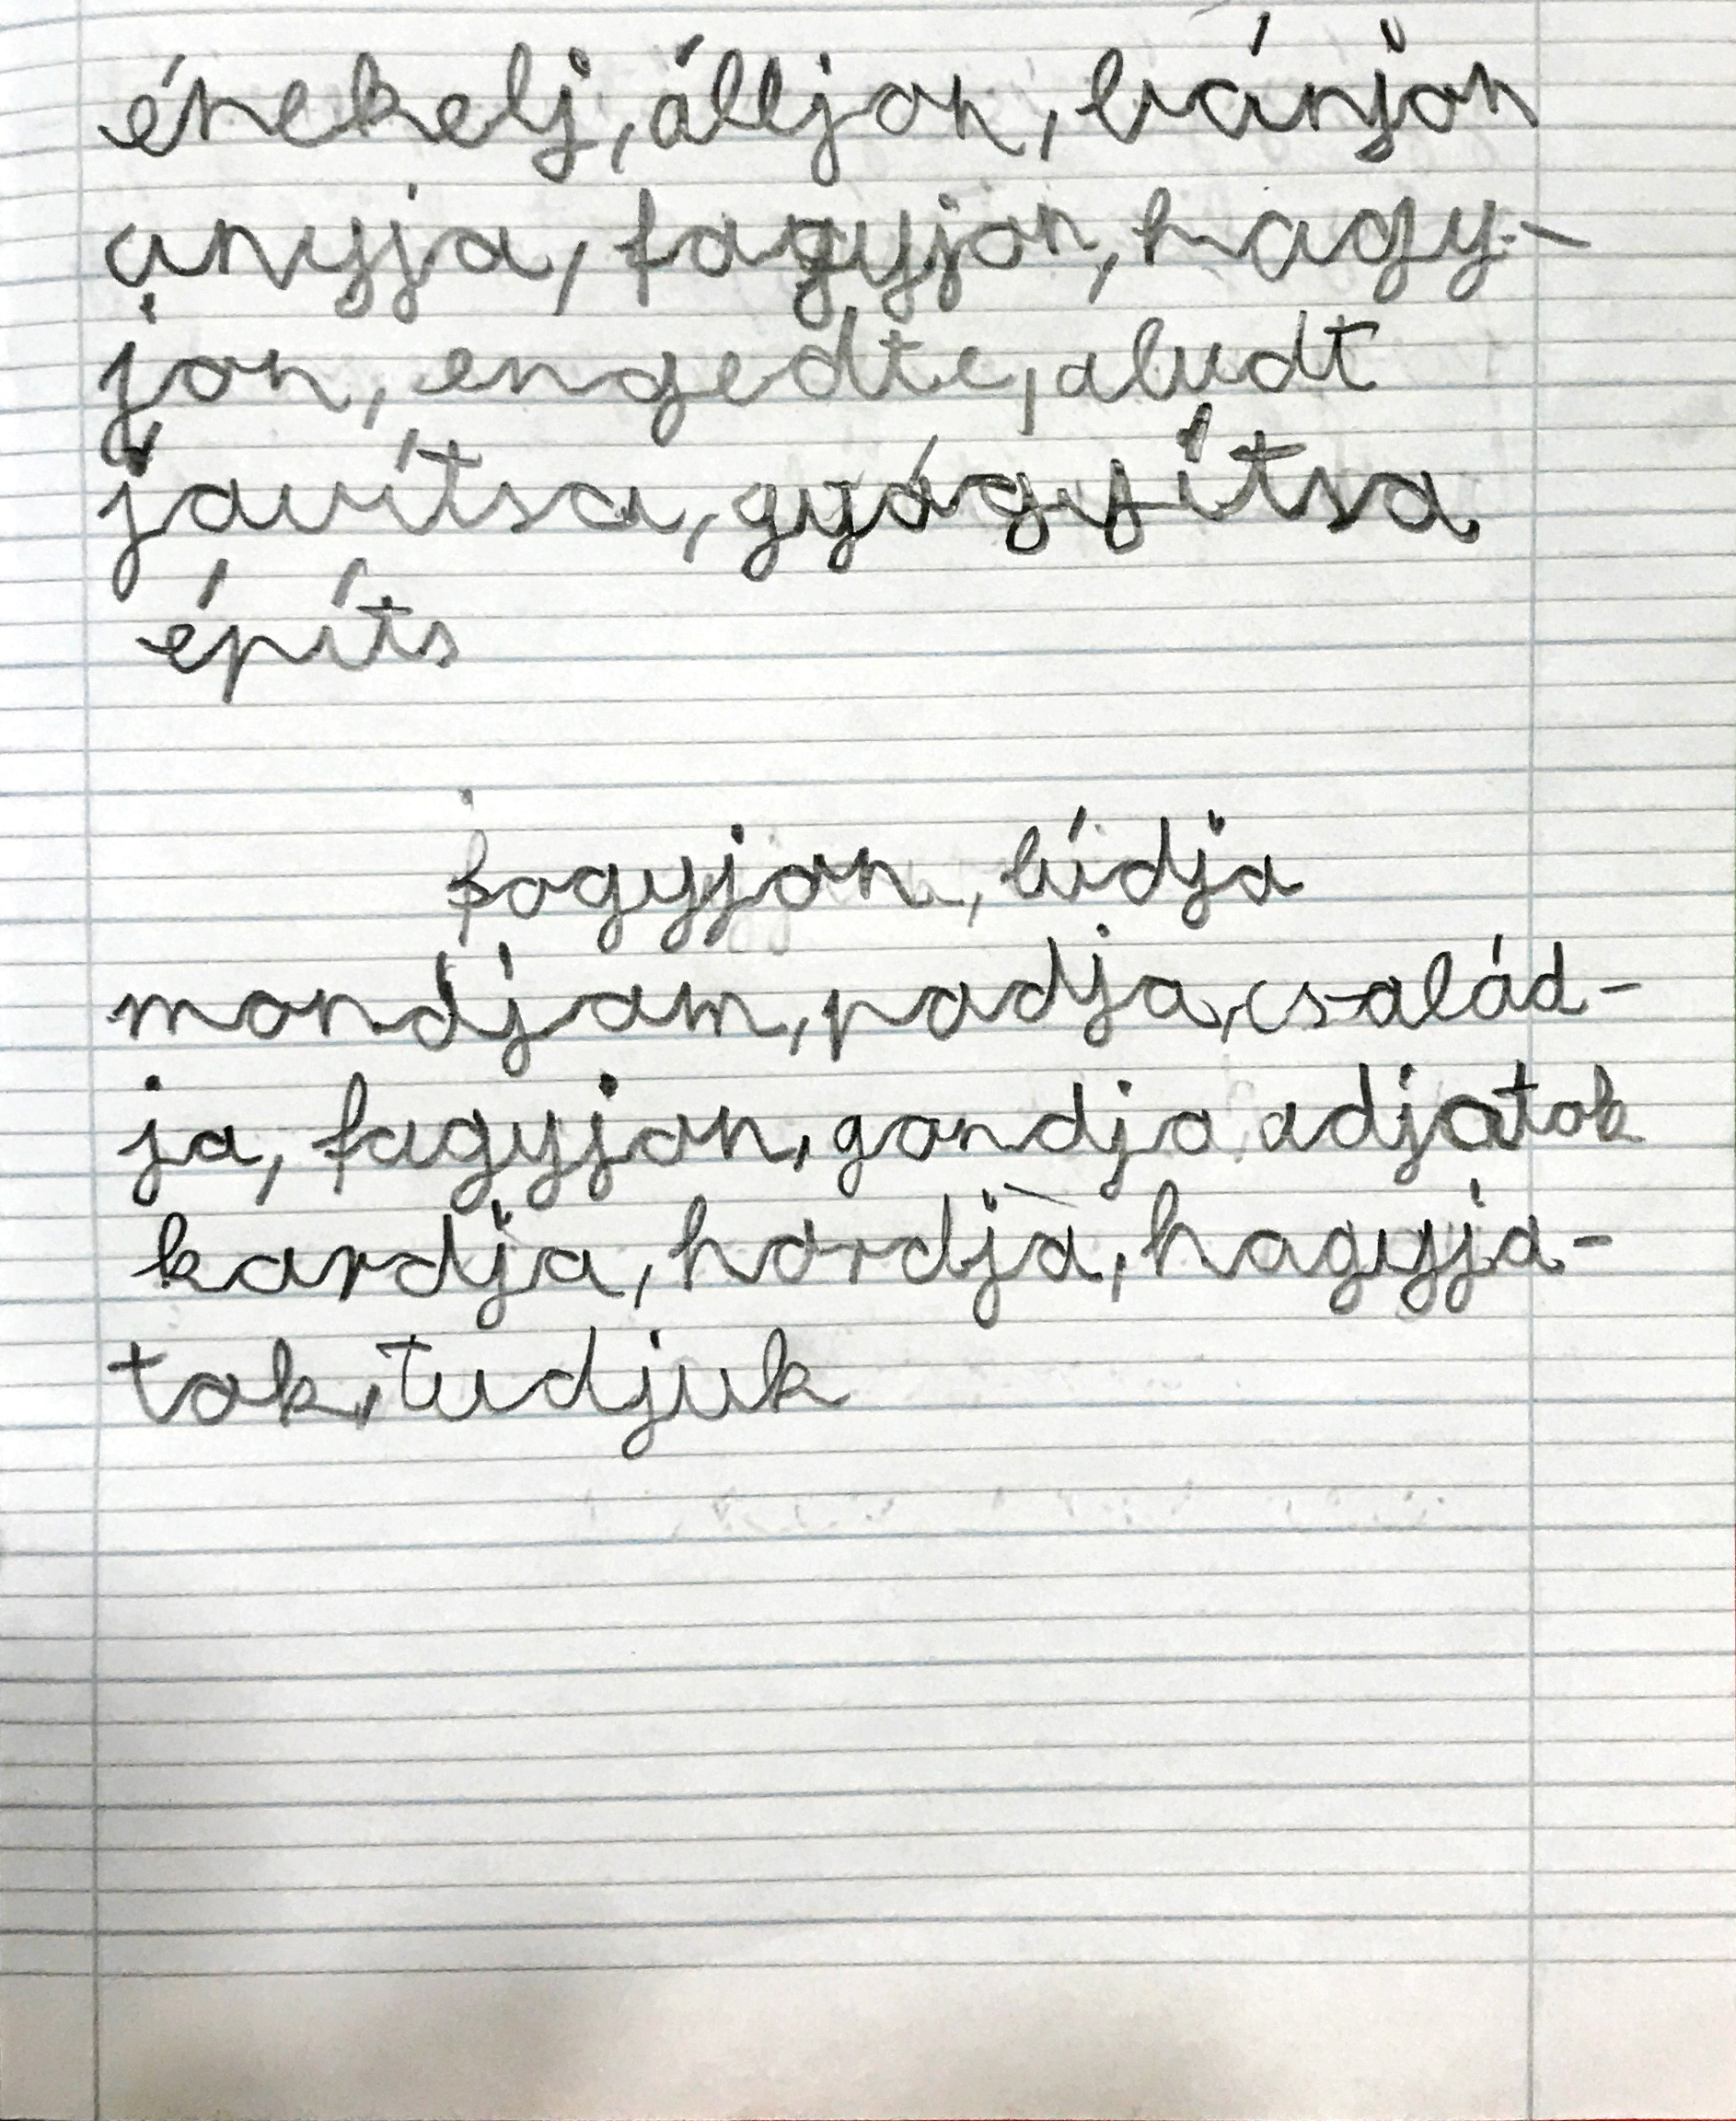 énekelj, álljon, bánjon
anyja, fagyjon, hagy-
jon, engedte, aludt
javítsa, gyógyítsa
építs
fogyjon, hídja
mondjam, padja, család-
ja, fagyjon, gondja, adjatok
kardja, hordja, hagyja-
tok, tudjuk